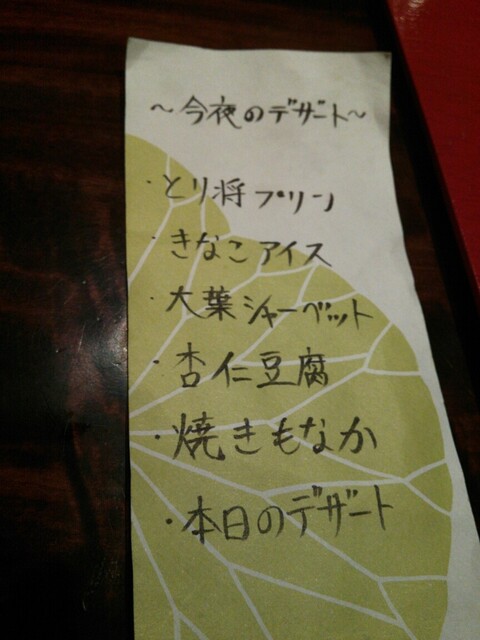 ~今夜のデザート~
・とり将プリン
・きなこアイス
・大葉シャーベット
・杏仁豆腐
・焼きもなか
・本日のデザート